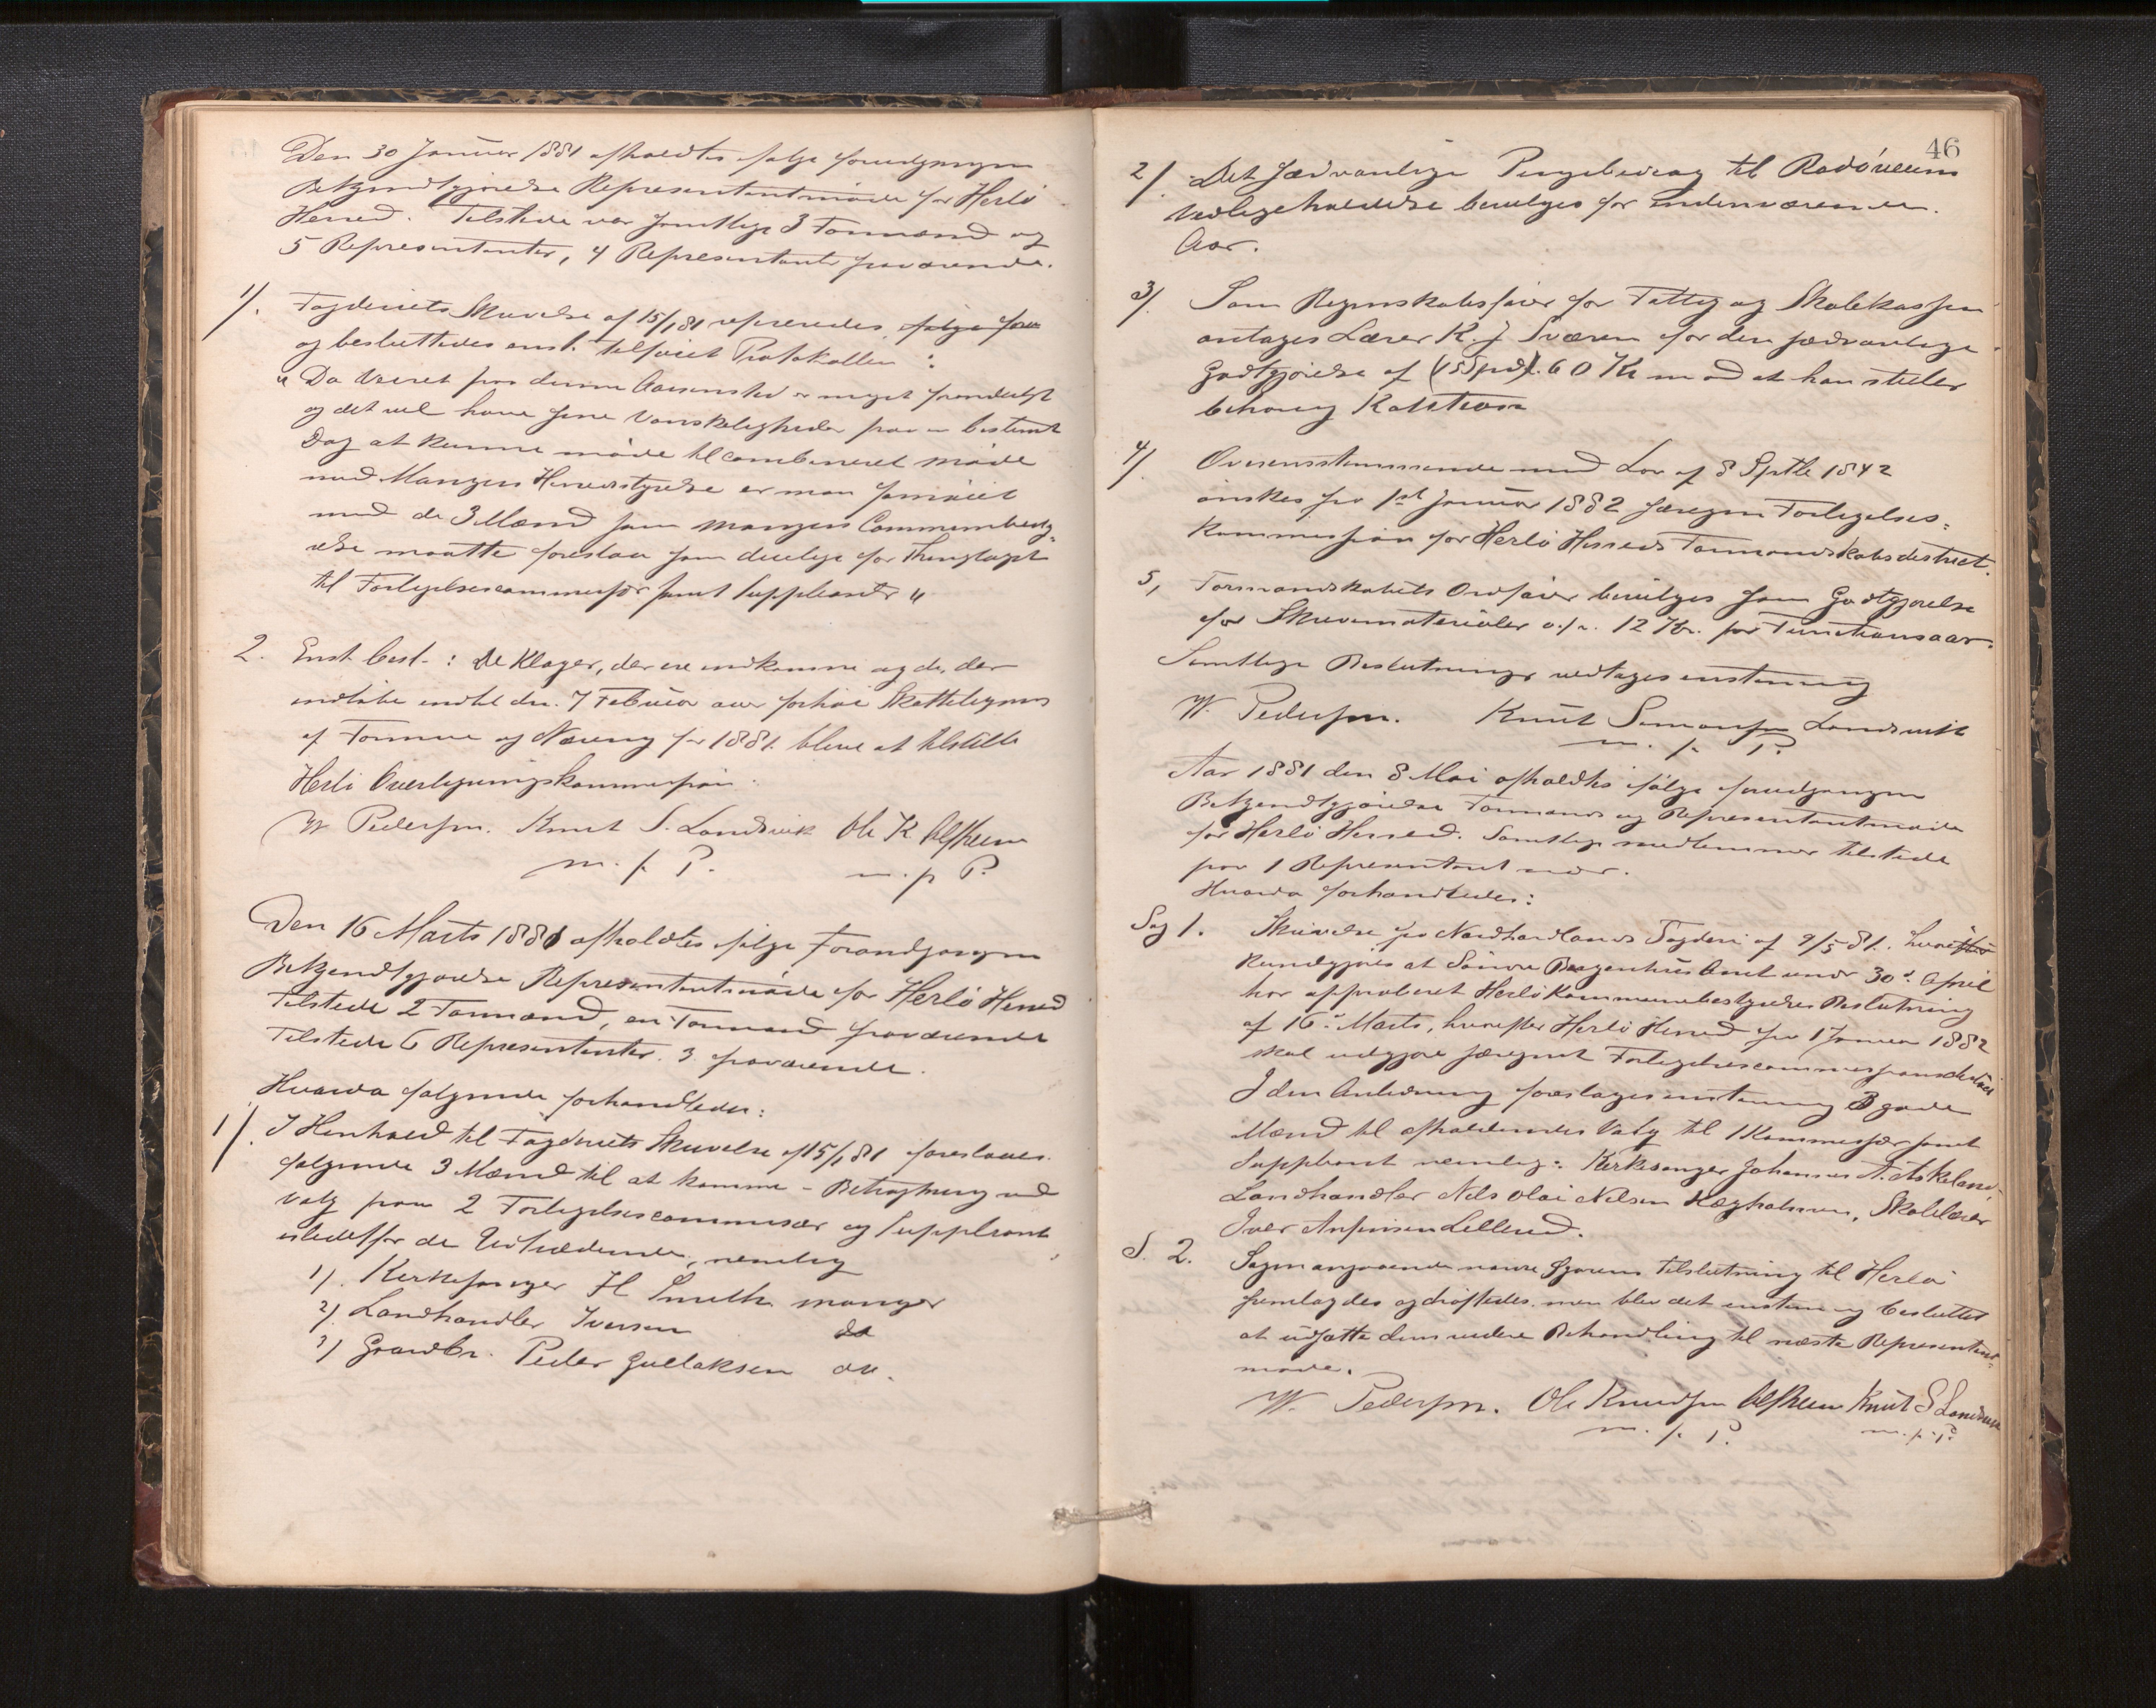 Den 30 Januar 1881 afholdtes ifølge forudgangen
Bekjendtgjørelse Repræsentantmøde for Herlø
Herred. Tilstede var samtlige 3 Formænd og
5 Repræsentanter, 4 Repræsentanter fraværende.
1/. Fogderiets Skrivelse af 15/1 81 refereredes, ifølge
og besluttedes enst. tilføiet Protokollen:
"Da Veiret paa denne Aarenstid er meget foranderligt
og det vil have sine Vanskeligheder paa en bestemt
Dag at kunne møde til combineret Møde
med Mangers Herredsstyrelse er man fornøiet
med de 3 Mænd som Mangers Communebesty-
relse maatte foreslaa som duelige for Thinglaget
til Forligelsescommissær samt Suppleanter"
2. Enst. besl.: De Klager, der ere indkomne og de, der
indløbe indtil den 7 Februar over forhøi Skatteligning
af Formue og Næring for 1881 blive at tilstille
Herlø Overligningskommission.
W Pedersen. Knut S. Landsvik Ole K Ulfsheim
m. p. P. m. p P.
Den 16 Marts 1881 afholdtes ifølge Forandgangen
Bekjendtgjørelse Repræsentantmøde for Herlø Herred
Tilstede 2 Formænd, en Formand fraværende
Tilstede 6 Repræsentanter. 3 fraværende.
Hvorda følgende forhandledes:
1/. I Henhold til Fogderiets Skrivelse af 15/1 81 foreslaaes
følgende 3 Mænd til at komme i Betragtning ved
Valg paa 2 Forligelsescommissær og Suppleant
istedetfor de Udtrædende, nemlig
1/. Kirkesanger H Smith Manger
2/. Landhandler Iversen do
3/ Gaardbr. Peder Gullaksen do.
46
2/. Det sædvanlige Pengebidrag til Radøveiens
Vedligeholdelse bevilges for indeværende
Aar.
3/. Som Regnskabsfører for Fattig og Skolekassen
antages Lærer K. J Sværen for den sædvanlige
Godtgjørelse af (15 Spd). 60 Kr mod at han stiller
behørig Kaution
4/. Overensstemmende med Lov af 8 Septbr 1842
ønskes fra 1st Januar 1882 særegen Forligelses-
kommission for Herlø Herreds Formandskabsdistrict.
5, Formandskabets Ordfører bevilges som Godtgjørelse
for Skrivematerialer o.s.v. 12 Kr. pr Functionsaar.
Samtlige Beslutninger vedtages enstemmig
W. Pedersen. Knut Simonsen Landsvik
m. p. P.
Aar 1881 den 8 Mai afholdtes ifølge forudgangen
Bekjendtgjørelse Formands og Repræsentantmøde
for Herlø Herred. Samtlige medlemmer tilstede
paa 1 Repræsentant nær.
Hvorda forhandledes:
Sag 1. Skrivelse fra Nordhordlands Fogderi af 9/5 81. hvori
kundgjøres at Søndre Bergenhus Amt under 30d April
har approberet Herlø Kommunebestyrelses Beslutning
af 16d Marts, hvorefter Herlø Herred fra 1 Januar 1882
skal udgjøre særegent Forligelsescommissionsdistrict
I den Anledning foreslages enstemmig 3 gode
Mænd til afholdendes Valg til 1 Kommissær samt
Suppleant nemlig: Kirkesanger Johannes A. Askeland,
Landhandler Nils Olai Nilsen Hægholmen, Skolelærer
Iver Anfinsen Lillerud.
S. 2. Sagen angaaende Tilslutning til Herlø
fremlagdes og drøftedes, men blev det enstemmig besluttet
at udsætte dens videre Behandling til næste Repræsentant-
møde.
W. Pedersen. Ole Knudsen Ulfsheim Knut S Landsvik
m. p. P. m. p. P.